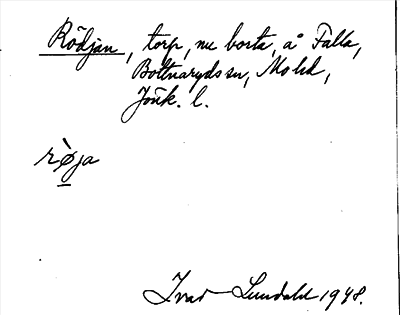 Rödjan, torp, nu borta, å Fälla,
Bottnaryds sn, Mo hd,
Jönk. l.
rø̀ja
Ivar Lundahl 1948.